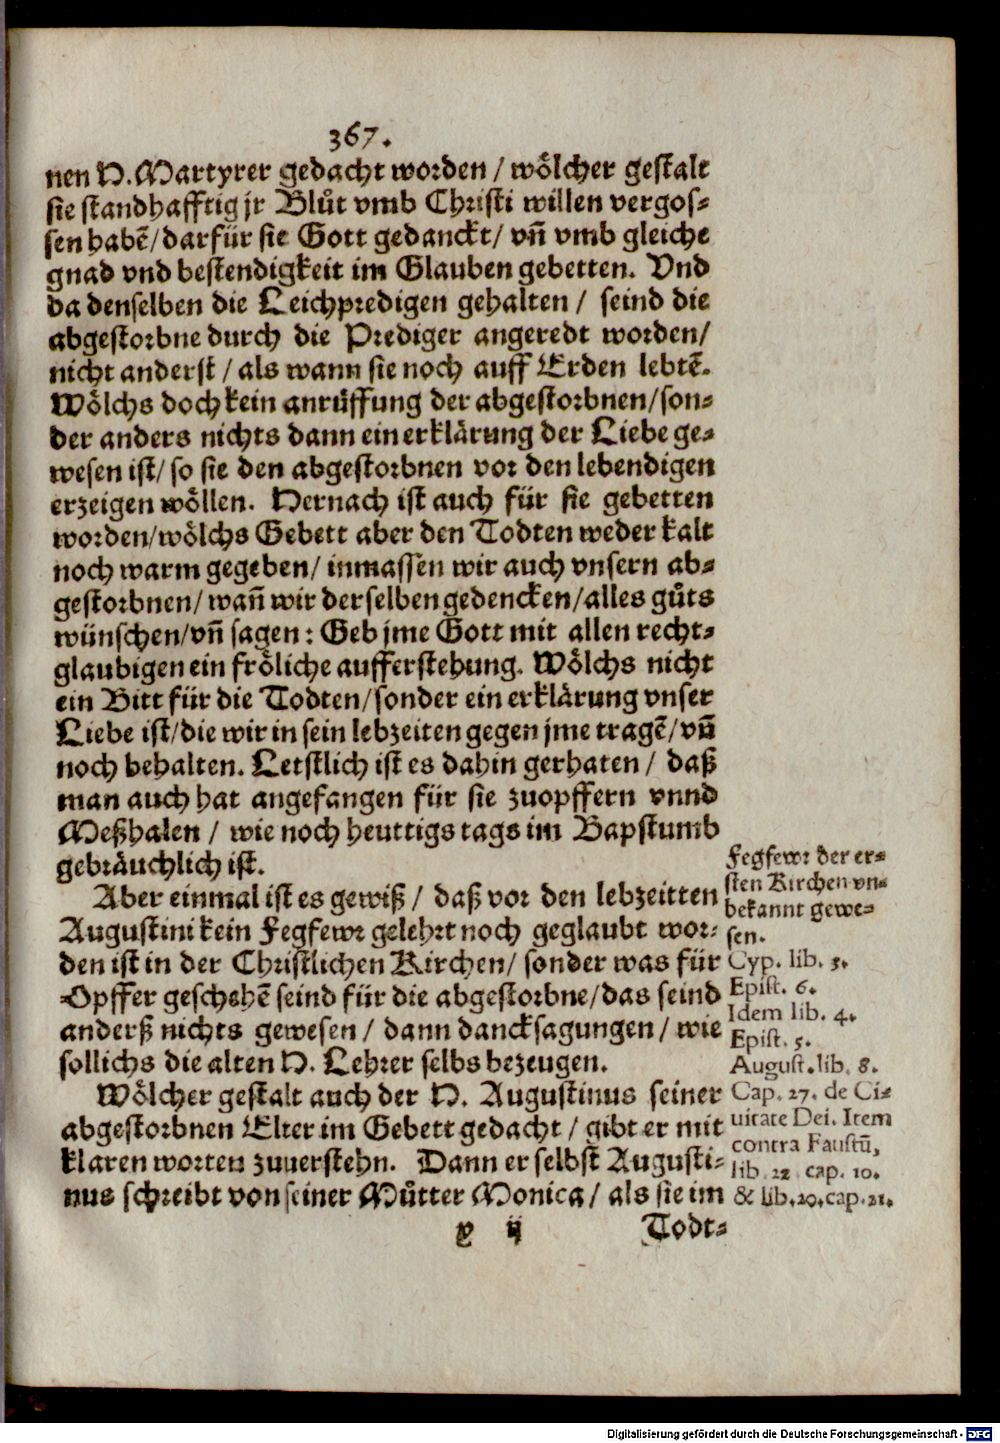 367.
nen H. Martyrer gedacht worden / wölcher gestalt
sie standhafftig jr Blůt vmb Christi willen vergos-
sen habẽ/darfür sie Gott gedanckt/ vñ vmb gleiche
gnad vnd bestendigkeit im Glauben gebetten. Vnd
da denselben die Leichpredigen gehalten / seind die
abgestorbne durch die Prediger angeredt worden/
nicht anderst / als wann sie noch auff Erden lebtẽ.
Wölchs doch kein anrüffung der abgestorbnen/son-
der anders nichts dann ein erklärung der Liebe ge-
wesen ist/ so sie den abgestorbnen vor den lebendigen
erzeigen wöllen. Hernach ist auch für sie gebetten
worden/wölchs Gebett aber den Todten weder kalt
noch warm gegeben/ inmassen wir auch vnsern ab-
gestorbnen/ wañ wir derselben gedencken/alles gůts
wünschen/vñ sagen: Geb jme Gott mit allen recht-
glaubigen ein fröliche aufferstehung. Wölchs nicht
ein Bitt für die Todten/sonder ein erklärung vnser
Liebe ist/die wir in sein lebzeiten gegen jme tragẽ/vñ
noch behalten. Letstlich ist es dahin gerhaten / daß
man auch hat angefangen für sie zuopffern vnnd
Meßhalen / wie noch heuttigs tags im Bapstumb
gebräuchlich ist.
Aber einmal ist es gewiß / daß vor den lebzeitten
Augustini kein Fegfewr gelehrt noch geglaubt wor-
den ist in der Christlichen Kirchen/ sonder was für
Opffer geschehẽ seind für die abgestorbne/das seind
anderß nichts gewesen / dann dancksagungen / wie
sollichs die alten H. Lehrer selbs bezeugen.
Wölcher gestalt auch der H. Augustinus seiner
abgestorbnen Elter im Gebett gedacht / gibt er mit
klaren worten zuuerstehn. Dann er selbst Augusti-
nus schreibt von seiner Můtter Monica/ als sie im
y ij Todt-
Fegfewr der er-
sten Kirchen vn-
bekannt gewe-
sen.
Cyp. lib. 3.
Epist. 6.
Idem lib. 4.
Epist. 5.
August. lib. 8.
Cap. 27. de Ci-
uitate Dei. Item
contra Faustũ,
lib. 22. cap. 10.
& lib. 20. cap. 21.
Digitalisierung gefördert durch die Deutsche Forschungsgemeinschaft - DFG